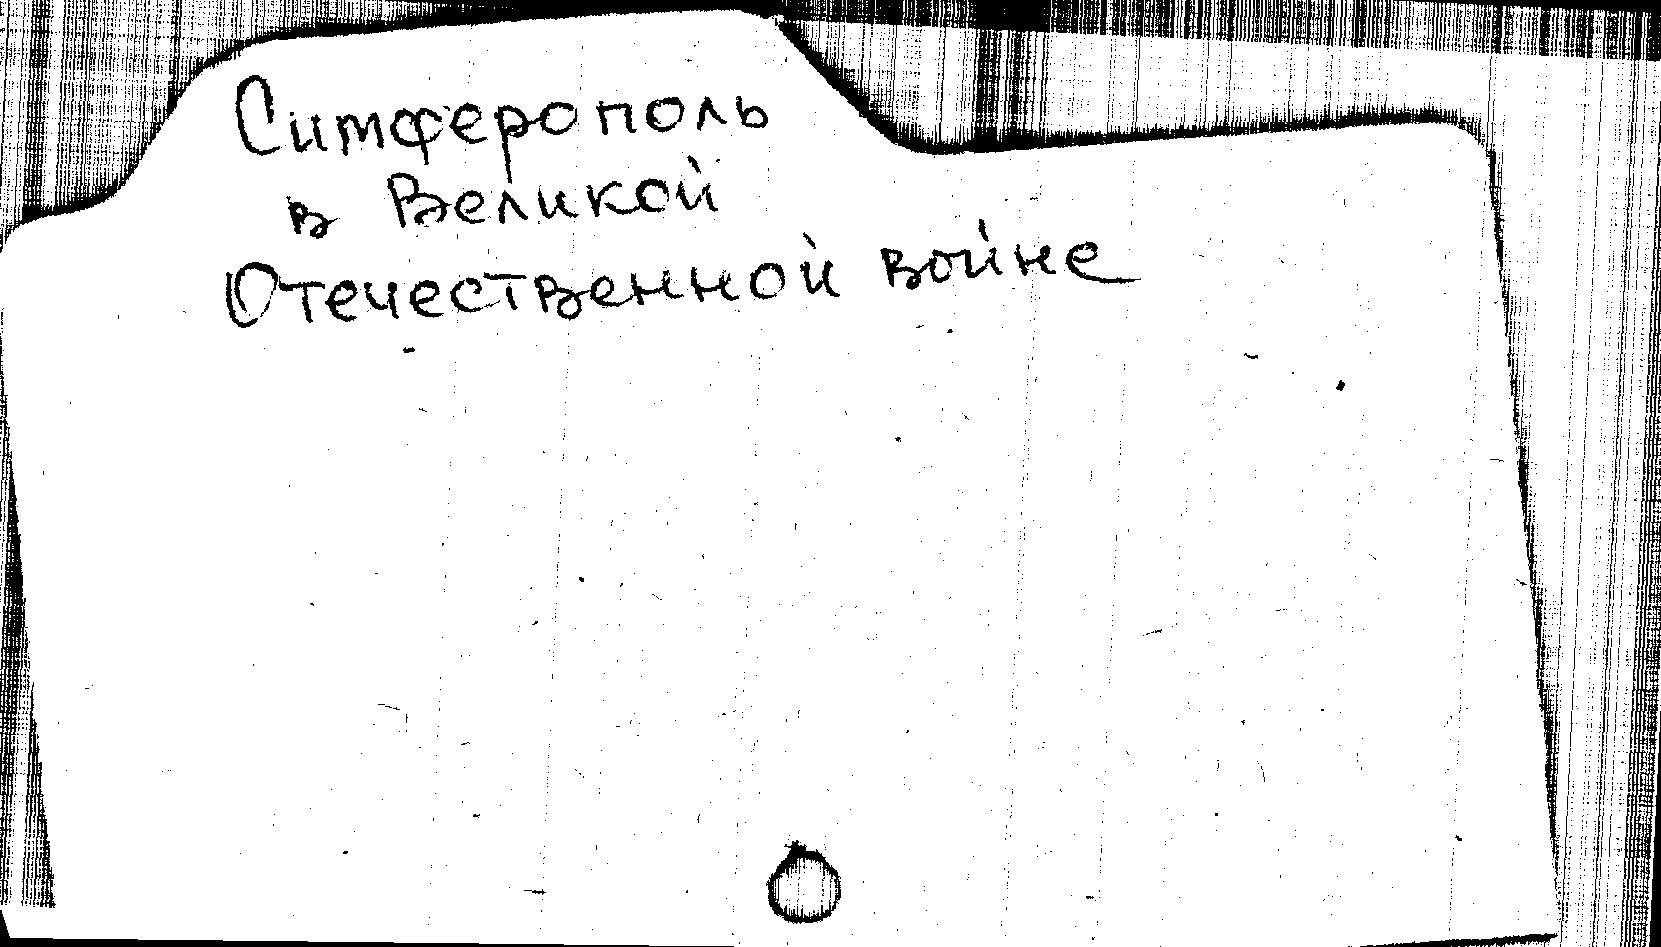 Симферополь
в Великой
Отечественной войне